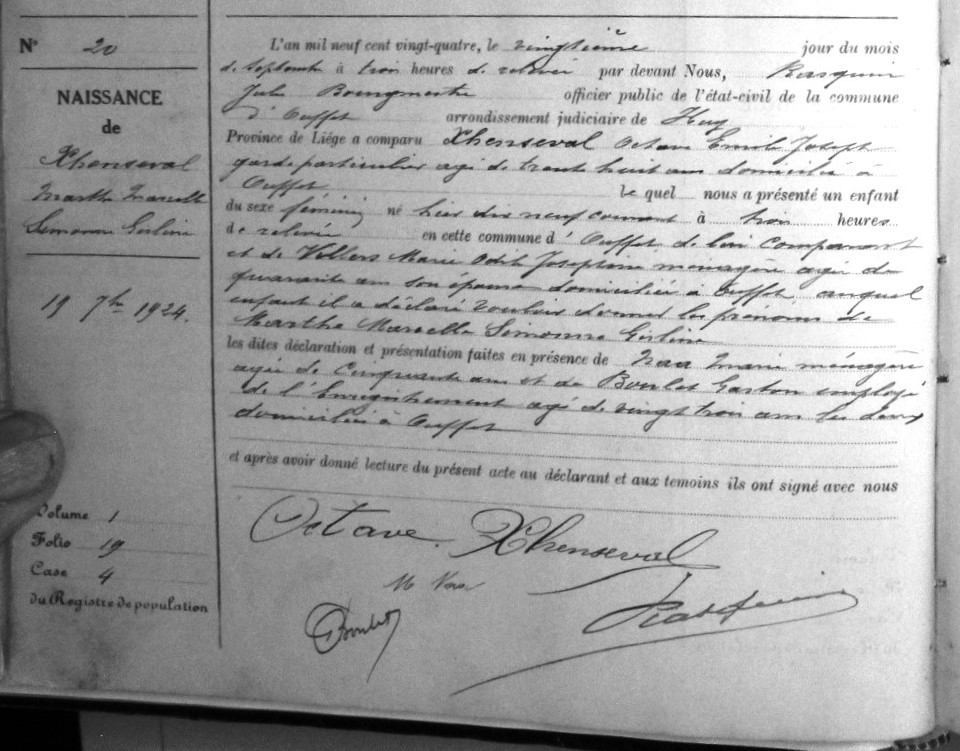 N° 20
NAISSANCE
de
Xhenseval
Marthe Marcelle
Simonne Gislène
19 7bre 1924.
Volume 1
Folio 19
Case 4
du Registre de population
L'an mil neuf cent vingt-quatre, le vingtième jour du mois
de septembre à trois heures de relevée par devant Nous, Rasquin
Jules Bourgmestre officier public de l'état-civil de la commune
d'Ouffet arrondissement judiciaire de Huy
Province de Liége a comparu Xhenseval Octave Emile Joseph
garde particulier agé de trente huit ans domicilié à
Ouffet lequel nous a présenté un enfant
du sexe féminin né hier dix neuf courant à trois heures
de relevée en cette commune d'Ouffet de lui comparant
et de Villers Marie Odile Joséphine ménagère agée de
quarante ans son épouse domiciliée à Ouffet auquel
enfant il a déclaré vouloir donner les prénoms de
Marthe Marcelle Simonne Gislène
les dites déclaration et présentation faites en présence de Marie ménagère
agée de cinquante ans et de Boulet Gaston employé
de l'Enregistrement agé de vingt trois ans les deux
domiciliés à Ouffet
et après avoir donné lecture du présent acte au déclarant et aux temoins ils ont signé avec nous
Octave Xhenseval
M
GBoulet
Rasquin